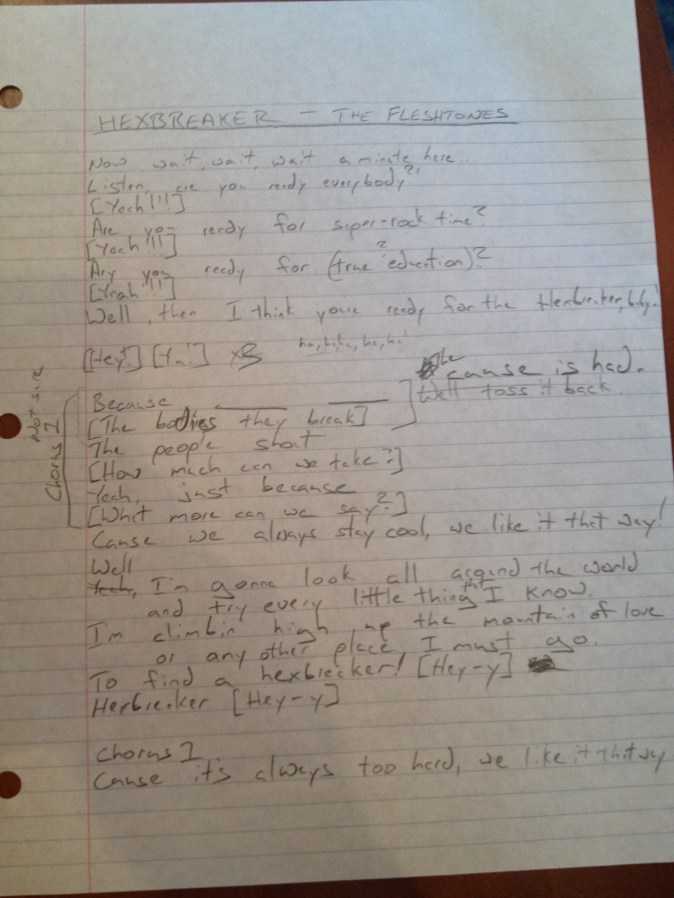 HEXBREAKER - THE FLESHTONES
Now wait, wait, wait a minute here..
Listen, are you ready everybody?!
[Yeah!!!]
Are you ready for super-rock time?
[Yeah!!!]
Are you ready for (true ? eduction)?
[Yeah!!!]
Well, then I think you're ready for the Hexbreaker, baby!
[Hey!] [Ya!] x8
The cause is had.
We'll toss it back
Not sure
Chorus 1
Because
[The bodies they break]
The people shout
[How much can we take?]
Yeah, just because
[What more can we say?]
Cause we always stay cool, we like it that way!
Well
Yeah, I'm gonna look all around the world
and try every little thing that I know.
I'm climbin high up the mountain of love
or any other place, I must go.
To find a hexbreaker! [Hey-y]
Hexbreaker [Hey-y]
Chorus 1
Cause it's always too hard, we like it that way